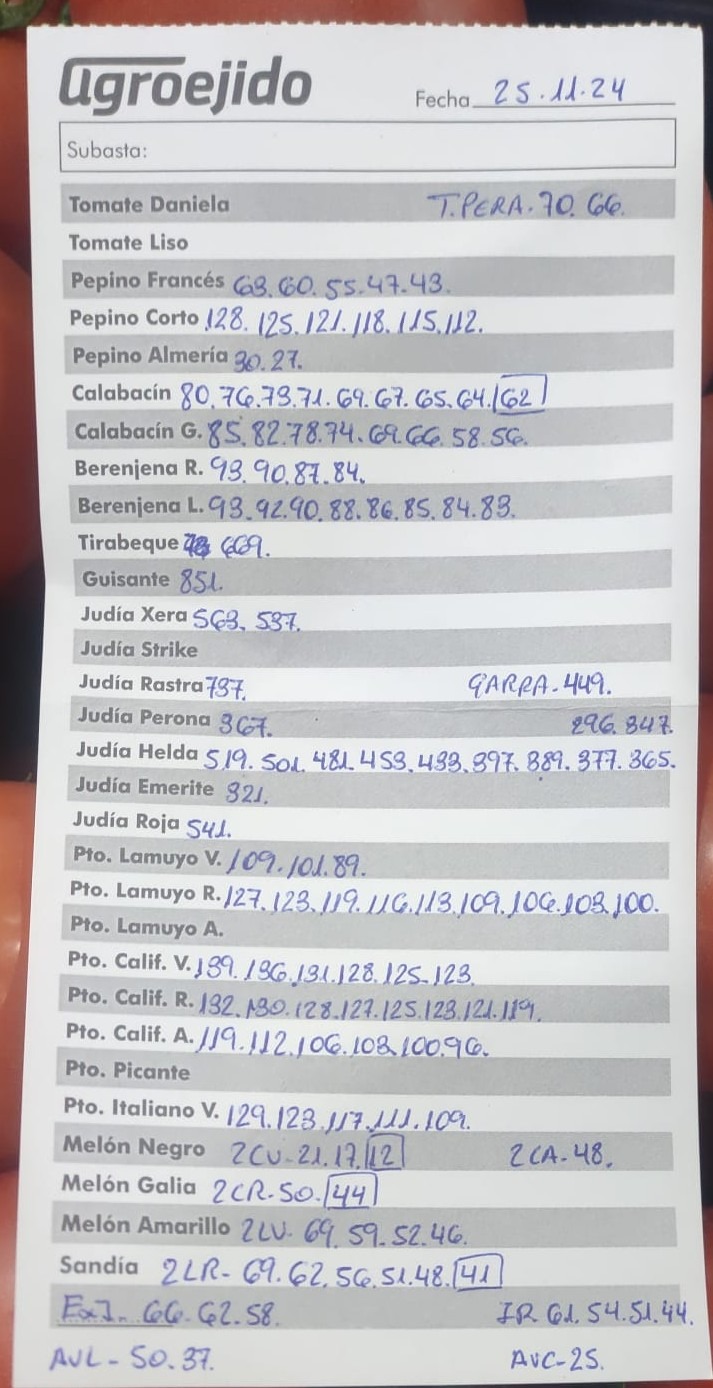 agroejido Fecha 25.11.24
Subasta:
Tomate Daniela T.PERA.70.66.
Tomate Liso
Pepino Francés 63.60.55.47.43.
Pepino Corto 128.125.121.118.115.112.
Pepino Almería 30.27.
Calabacín 80.76.73.71.69.67.65.64.62
Calabacín G. 85.82.78.74.69.66.58.56.
Berenjena R. 93.90.87.84.
Berenjena L. 93.92.90.88.86.85.84.83.
Tirabeque 669.
Guisante 851.
Judía Xera 563.537.
Judía Strike
Judía Rastra 737. GARRA-449.
Judía Perona 367. 296.347.
Judía Helda 519.501.481.453.433.397.389.377.365.
Judía Emerite 321.
Judía Roja 541.
Pto. Lamuyo V. 109.101.89.
Pto. Lamuyo R. 127.123.119.116.113.109.106.103.100.
Pto. Lamuyo A.
Pto. Calif. V. 139.136.131.128.125.123.
Pto. Calif. R. 132.130.128.127.125.123.121.119.
Pto. Calif. A. 119.112.106.103.100.96.
Pto. Picante
Pto. Italiano V. 129.123.117.111.109.
Melón Negro 2CU-21.17.12 2CA-48.
Melón Galia 2CR-50.44
Melón Amarillo 2LV-69.59.52.46.
Sandía 2LR-69.62.56.51.48.41
66.62.58. IR 61.54.51.44.
AVL-50.37. AVC-25.